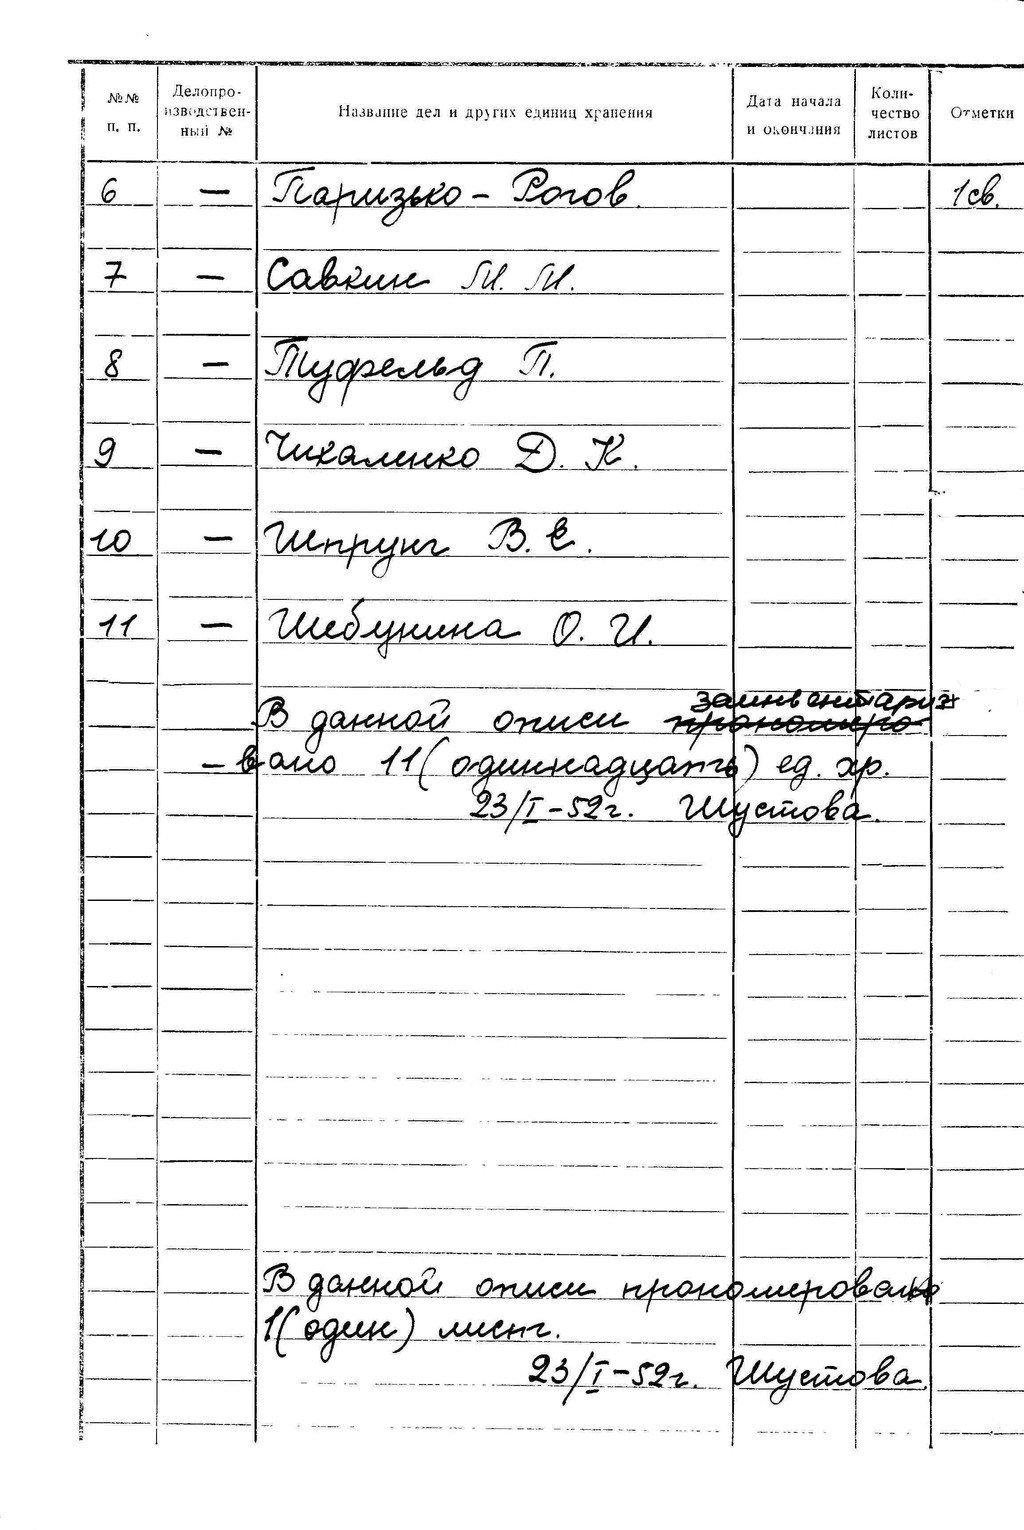 №№ п. п. Делопро-изводствен-ный № Название дел и других единиц хранения Дата начала и окончания Коли-чество листов Отметки
6 — Паризько - Рогов. 1 св.
7 — Савкин М. М.
8 — Туфельд П.
9 — Чикаленко Д. К.
10 — Шпрунг В. Е.
11 — Шебунина О. И.
заинвентаризи
В данной описи прономеро
-вано 11 (одиннадцать) ед. хр.
23/I-52г. Шустова.
В данной описи прономеровано
1 (один) лист.
23/I-52г. Шустова.